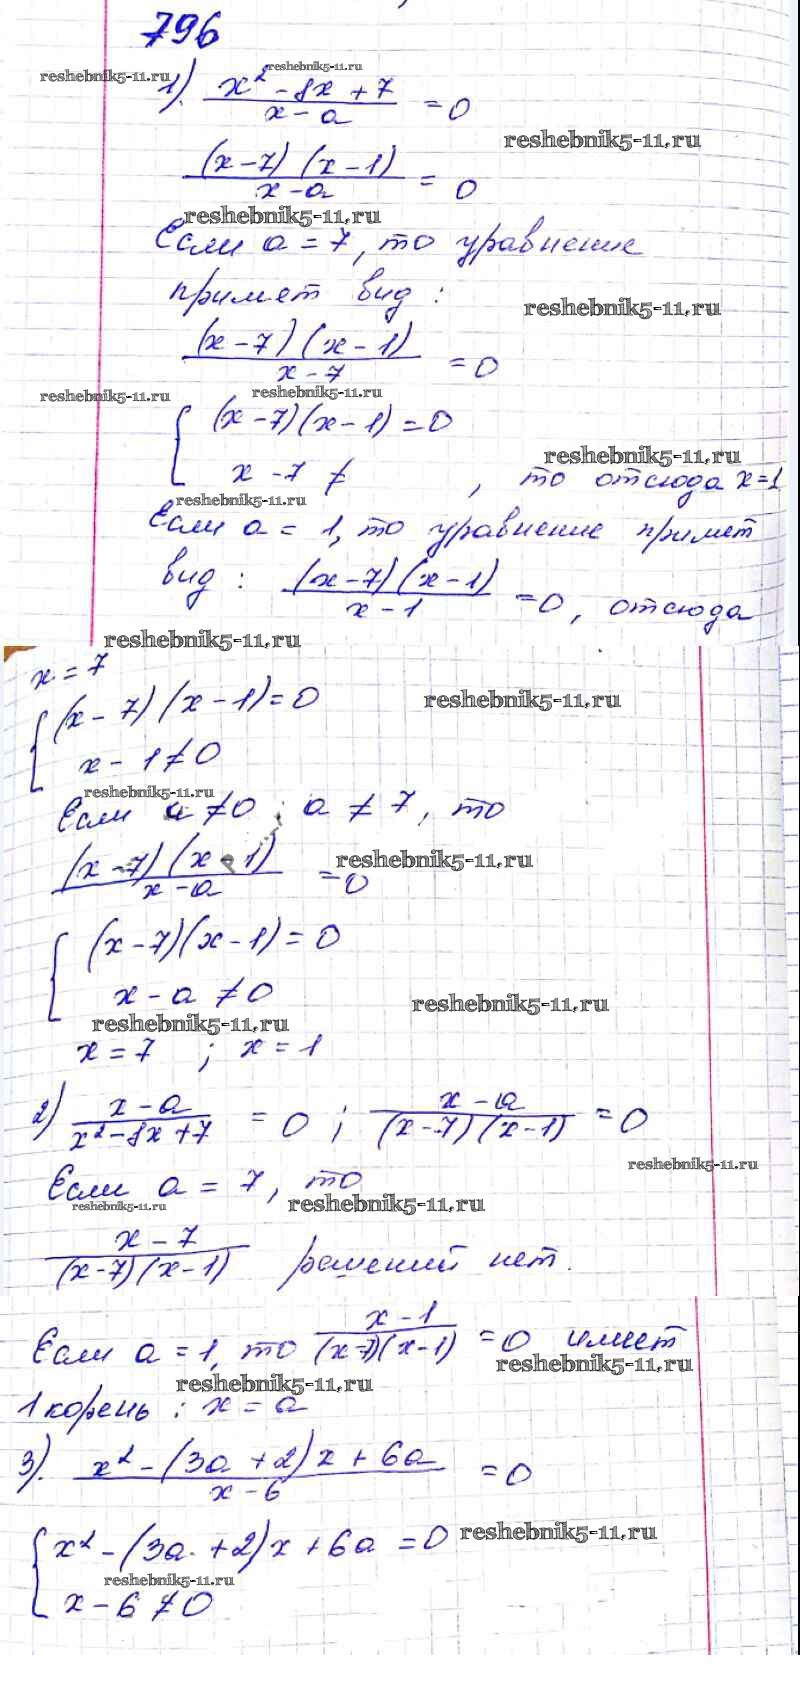 796
reshebnik5-11.ru
reshebnik5-11.ru
1). (x² - 8x + 7)/(x - a) = 0
reshebnik5-11.ru
((x-7)(x-1))/(x-a) = 0
reshebnik5-11.ru
Если a = 7, то уравнение
примет вид:
reshebnik5-11.ru
((x-7)(x-1))/(x-7) = 0
reshebnik5-11.ru
reshebnik5-11.ru
{ (x-7)(x-1) = 0
reshebnik5-11.ru
x - 7 ≠ , то отсюда x=1
reshebnik5-11.ru
Если a = 1, то уравнение примет
вид: ((x-7)(x-1))/(x-1) = 0, отсюда
reshebnik5-11.ru
x = 7
reshebnik5-11.ru
{ (x-7)(x-1) = 0
x - 1 ≠ 0
reshebnik5-11.ru
Если a ≠ 0; a ≠ 7, то
((x-7)(x-1))/(x-a) = 0
reshebnik5-11.ru
{ (x-7)(x-1) = 0
x - a ≠ 0
reshebnik5-11.ru
reshebnik5-11.ru
x = 7 ; x = 1
2) (x-a)/(x²-8x+7) = 0 ; (x-a)/((x-7)(x-1)) = 0
reshebnik5-11.ru
Если a = 7, то
reshebnik5-11.ru
reshebnik5-11.ru
(x-7)/((x-7)(x-1)) решений нет.
Если a = 1, то (x-1)/((x-7)(x-1)) = 0 имеет
reshebnik5-11.ru
reshebnik5-11.ru
1 корень: x = a
3). (x² - (3a + 2)x + 6a)/(x - 6) = 0
reshebnik5-11.ru
{ x² - (3a + 2)x + 6a = 0
reshebnik5-11.ru
x - 6 ≠ 0